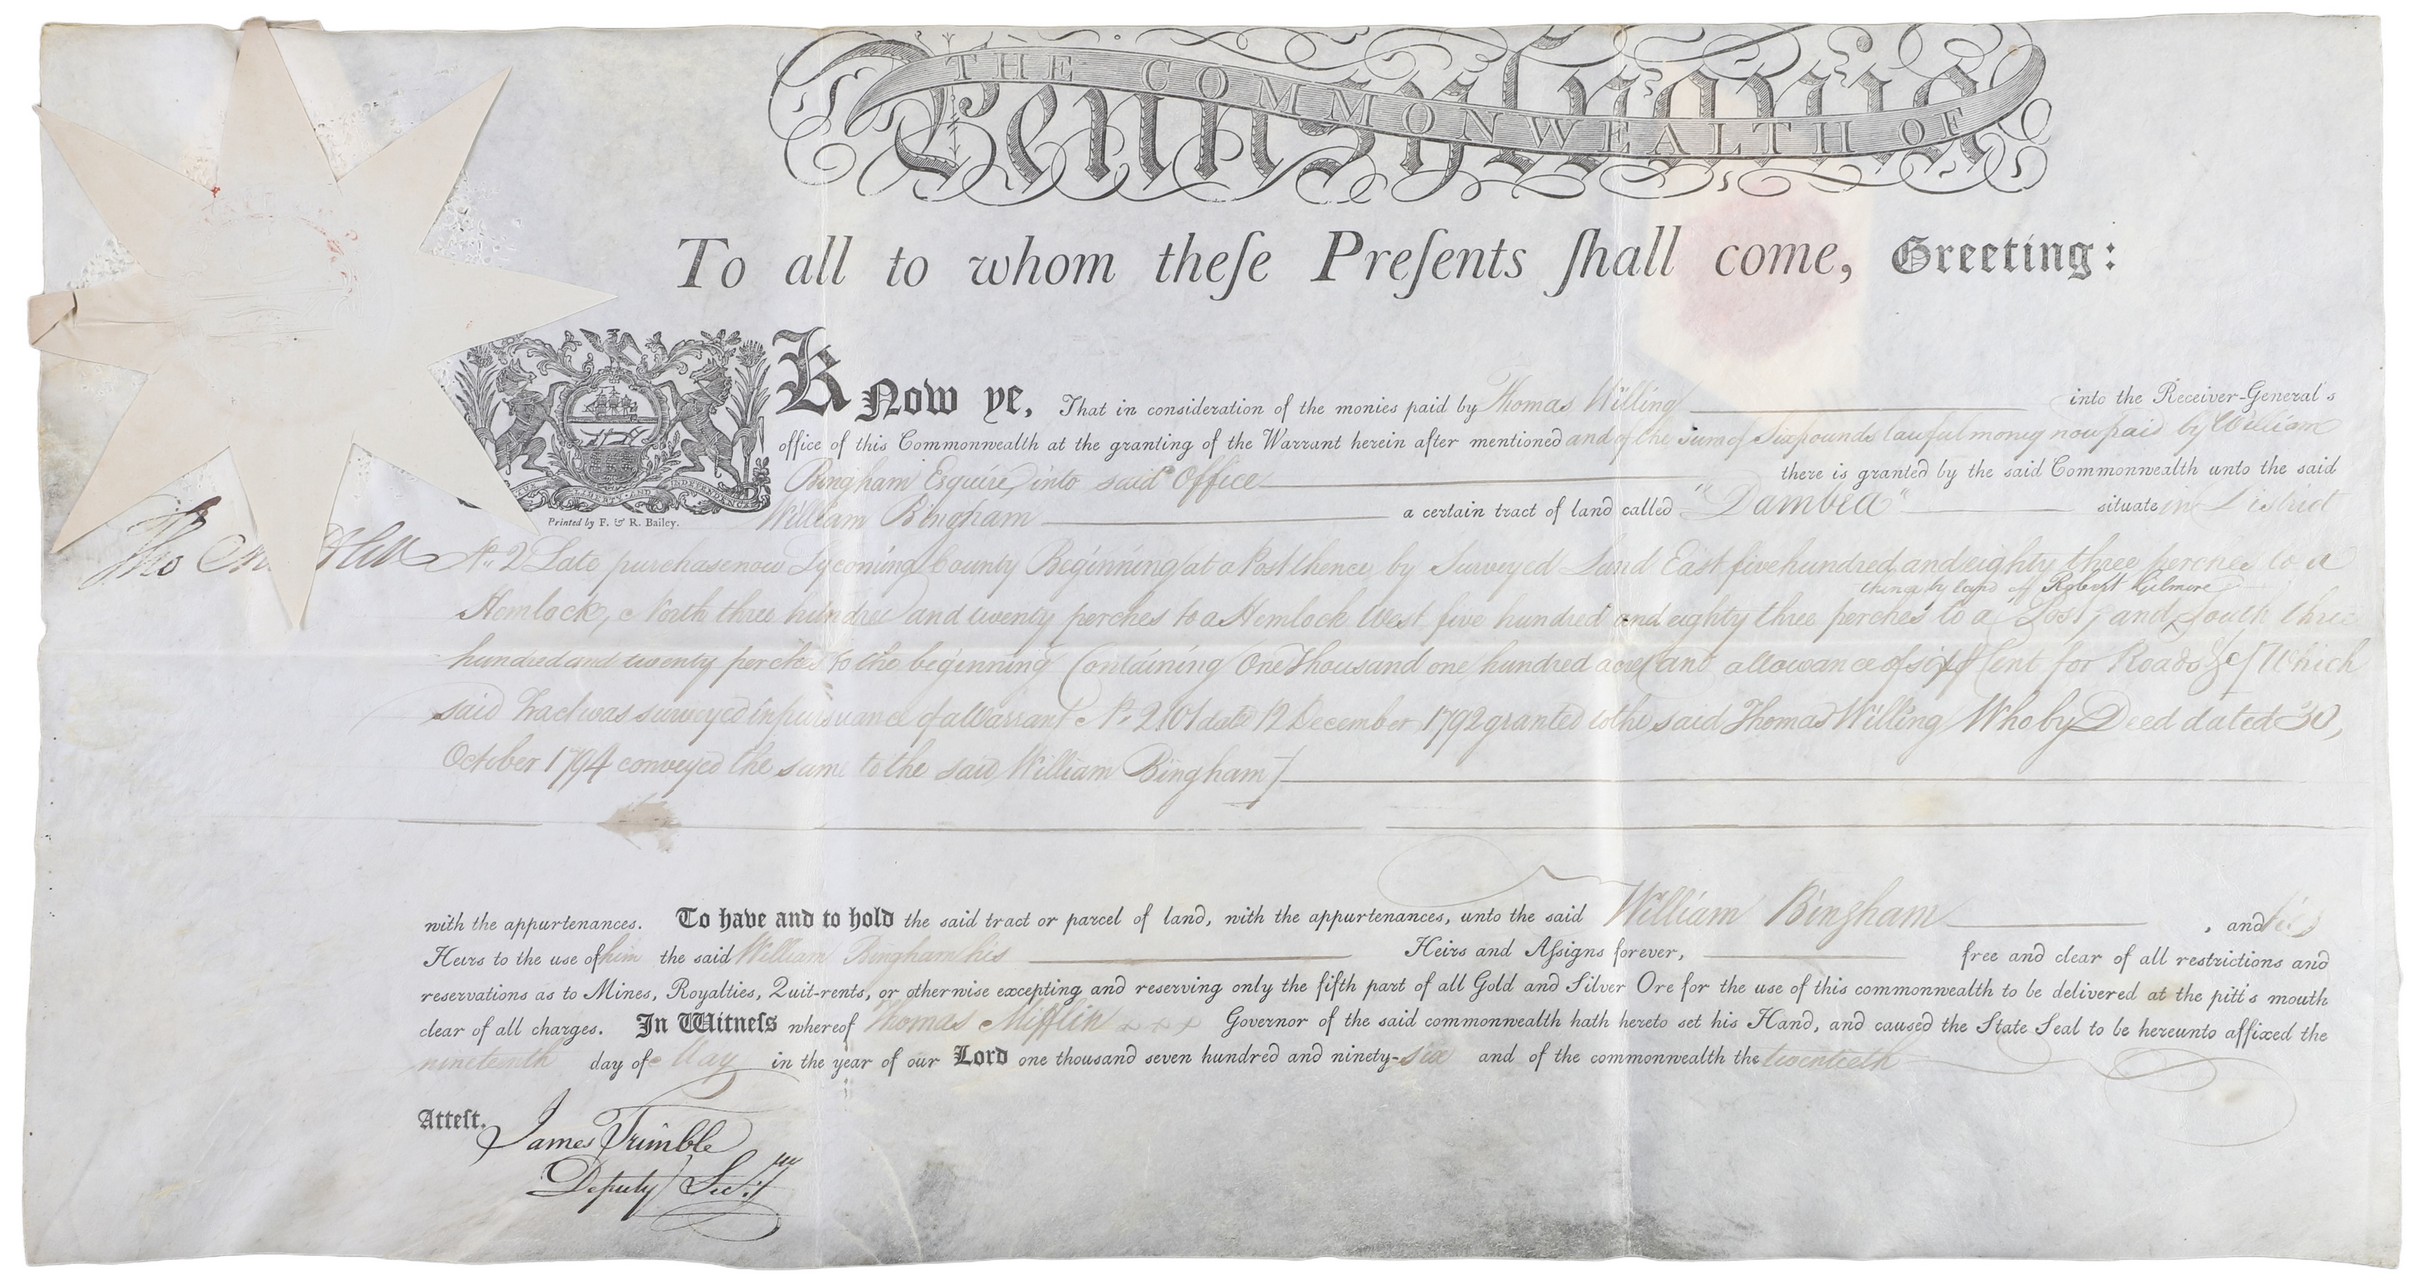 THE COMMONWEALTH OF
Pennsylvania
To all to whom theſe Preſents ſhall come, Greeting:
Know ye, That in consideration of the monies paid by Thomas Willing into the Receiver-General's
office of this Commonwealth at the granting of the Warrant herein after mentioned and of the sum of Six pounds lawful money now paid by William
Bingham Esquire, into said Office there is granted by the said Commonwealth unto the said
William Bingham a certain tract of land called "Dambea" situate in District
LIBERTY AND INDEPENDENCE
Printed by F. & R. Bailey.
Tho
No. 2 Late purchase now Lycoming County Beginning at a Post thence by Surveyed Land East five hundred and eighty three perches to a
thence by land of Robert Gilmore
Hemlock, North three hundred and twenty perches to a Hemlock West five hundred and eighty three perches to a Post, and South three
hundred and twenty perches to the beginning Containing One Thousand one hundred acres and allowance of six ⅌ Cent for Roads &c [Which
said Tract was surveyed in pursuance of a Warrant No. date 12 December 1792 granted to the said Thomas Willing Who by Deed dated 30,
October 1794 conveyed the same to the said William Bingham]
with the appurtenances. To have and to hold the said tract or parcel of land, with the appurtenances, unto the said William Bingham , and his
Heirs to the use of him the said William Bingham his Heirs and Aſsigns forever, free and clear of all restrictions and
reservations as to Mines, Royalties, Quit-rents, or otherwise excepting and reserving only the fifth part of all Gold and Silver Ore for the use of this commonwealth to be delivered at the pitt's mouth
clear of all charges. In Witneſs whereof Thomas Mifflin x x x Governor of the said commonwealth hath hereto set his Hand, and caused the State Seal to be hereunto affixed the
nineteenth day of May in the year of our Lord one thousand seven hundred and ninety-six and of the commonwealth the twentieth
Atteſt. James Trimble
Deputy Secy